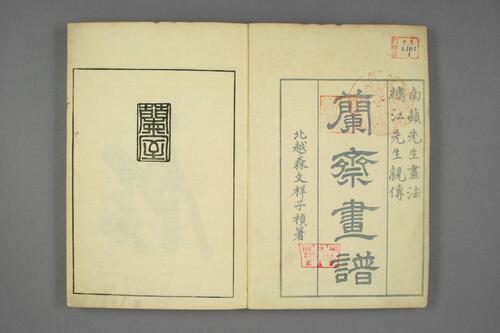 南蘋先生畫法
繡江先生親傳
蘭齋畫譜
北越森文祥子禎著